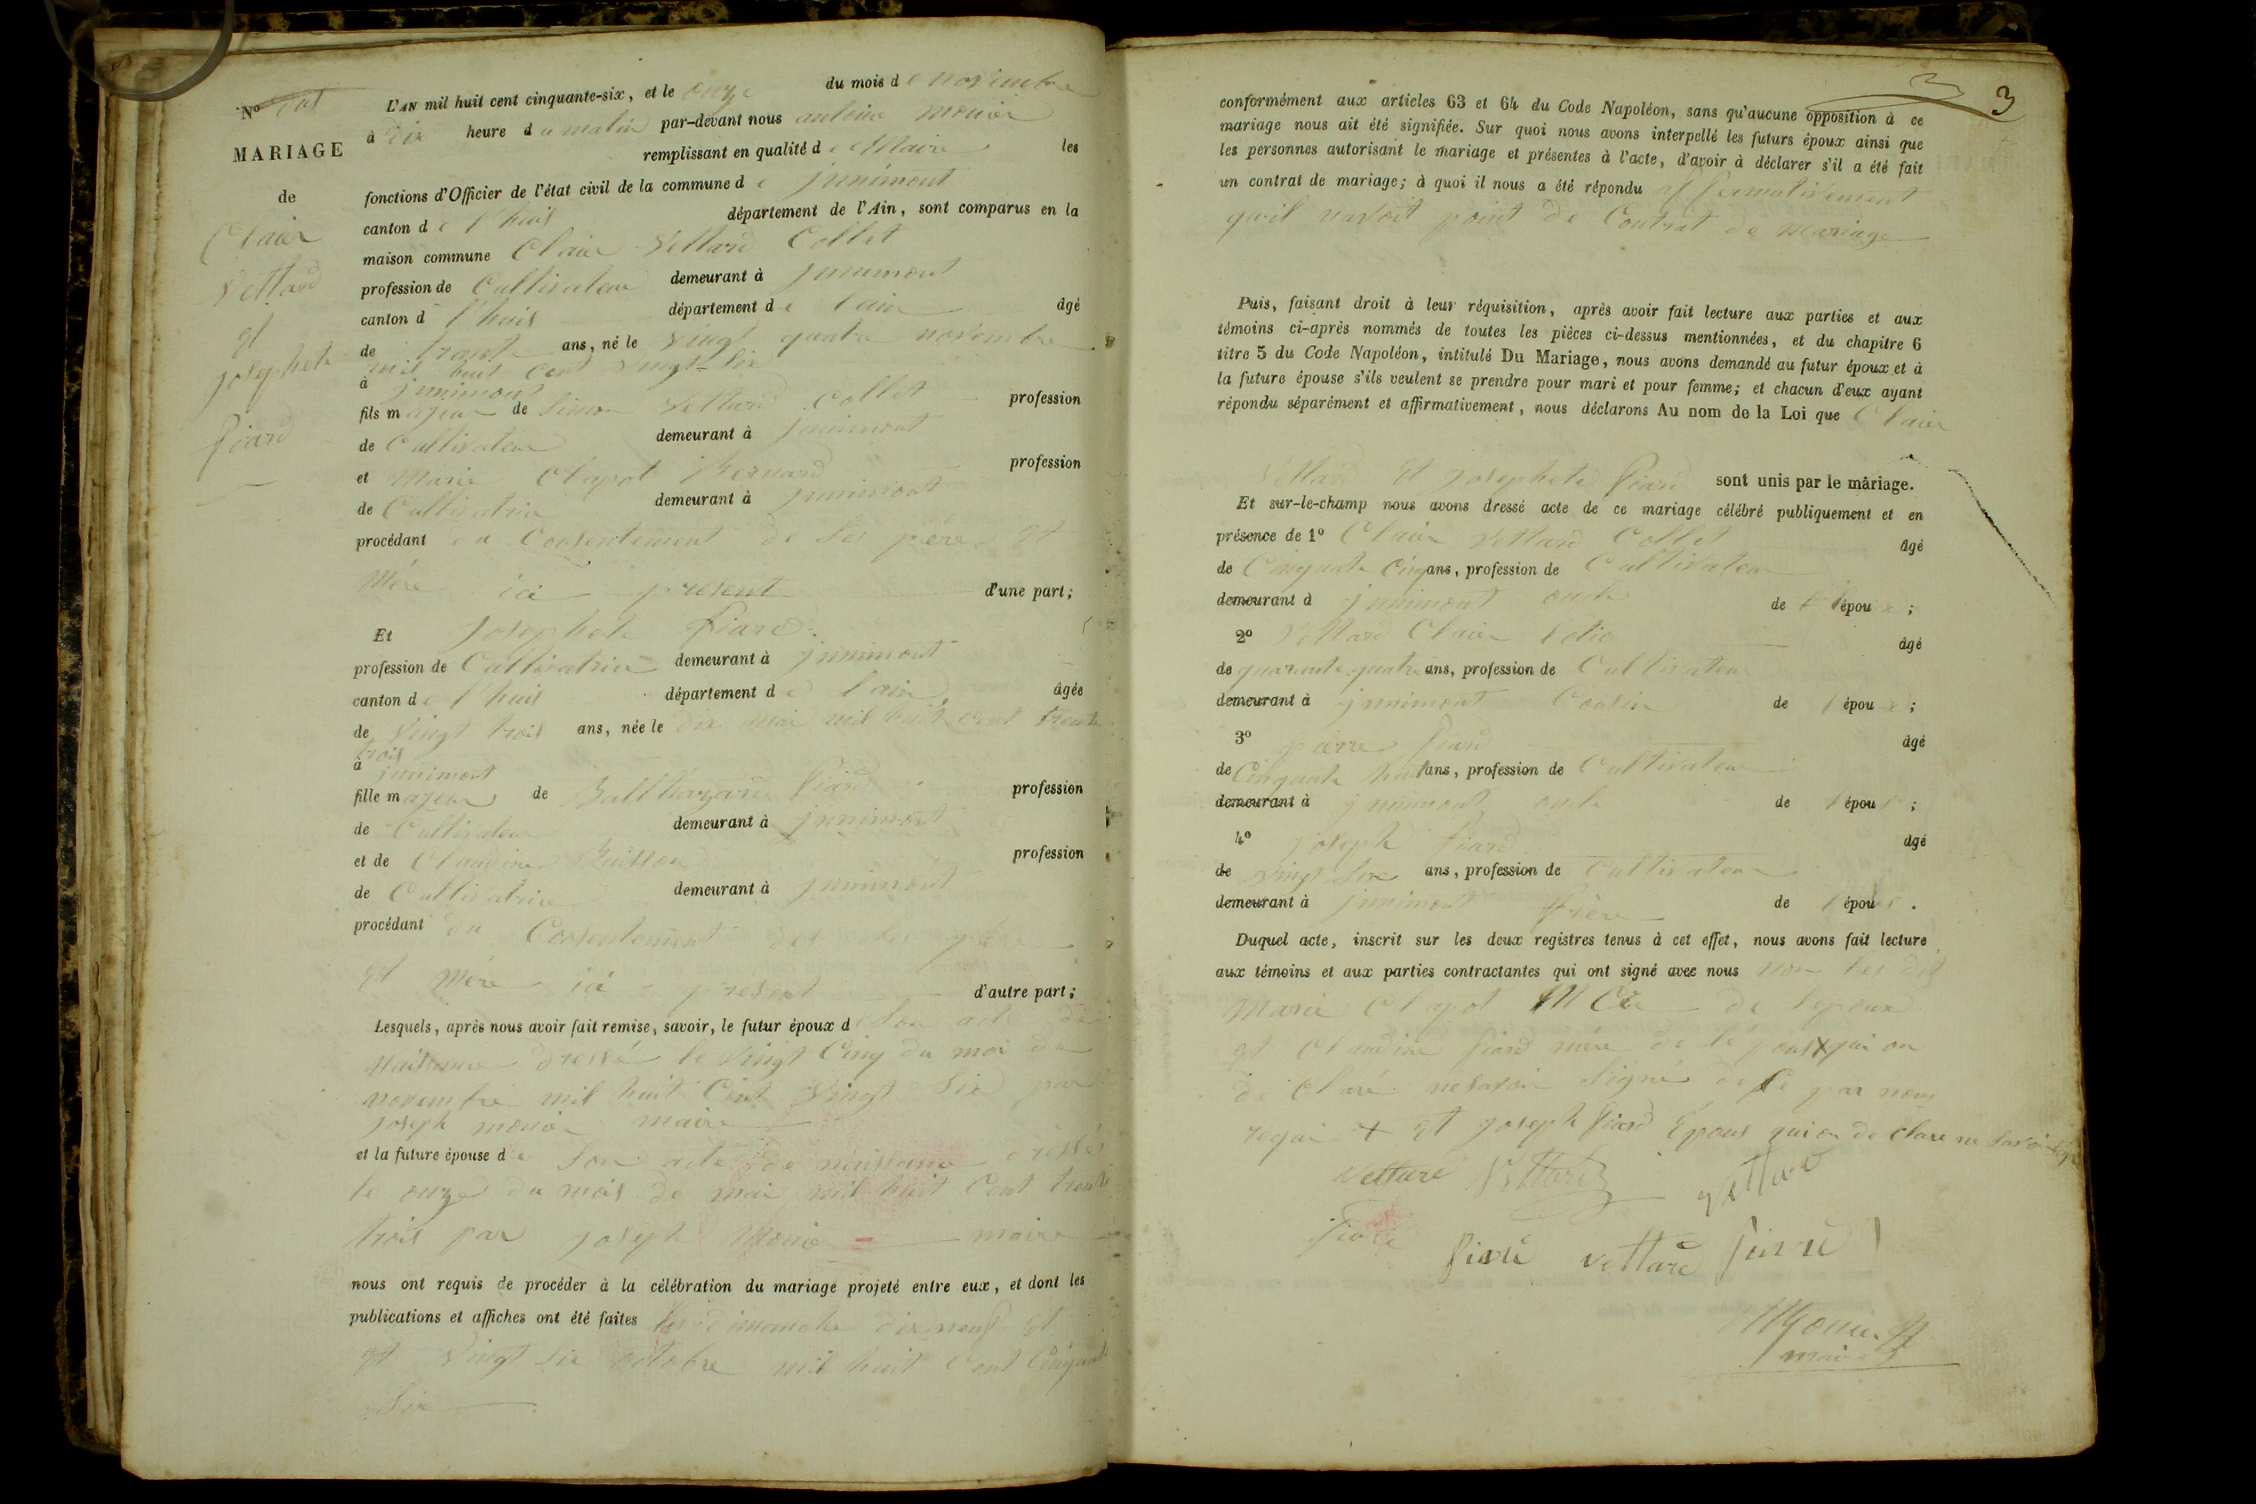 No
MARIAGE
de
Claire
Vettard
et
josephete
fiard
L'AN mil huit cent cinquante-six, et le onze du mois de novembre
à dix heure du matin par-devant nous antoine monier
remplissant en qualité de Maire les
fonctions d'Officier de l'état civil de la commune de junimont
canton de l'huis département de l'Ain, sont comparus en la
maison commune Claire Vettard Collet
profession de Cultivateur demeurant à junimont
canton d l'huis département de l'ain âgé
de trante ans, né le vingt quatre novembre
mil huit cent vingt-six
à junimont
fils majeur de Simon Vettard Collet profession
de Cultivateur demeurant à junimont
et Marie Clapot Bernard profession
de Cultivatrice demeurant à junimont
procédant du Consentement de Ses père et
Mère ici present d'une part;
Et Josephete fiard
profession de Cultivatrice demeurant à junimont
canton de l'huis département de l'ain âgée
de vingt trois ans, née le dix mai mil huit cent trente
trois
à junimont
fille majeur de Balthazard fiard profession
de Cultivateur demeurant à junimont
et de Claudine Buisson profession
de Cultivatrice demeurant à junimont
procédant du Consentement des père
et Mère ici present d'autre part;
Lesquels, après nous avoir fait remise, savoir, le futur époux de Son acte de
Naissance dressé le vingt Cinq du moi de
novembre mil huit Cent vingt Six par
joseph monier maire
et la future épouse de Son acte de naissance dressés
le onze du mois de mai mil huit Cent trente
trois par joseph Monier maire
nous ont requis de procéder à la célébration du mariage projeté entre eux, et dont les
publications et affiches ont été faites les dimanche dix neuf et
et vingt six octobre mil huit cent Cinquante
Six
3
conformément aux articles 63 et 64 du Code Napoléon, sans qu'aucune opposition à ce
mariage nous ait été signifiée. Sur quoi nous avons interpellé les futurs époux ainsi que
les personnes autorisant le mariage et présentes à l'acte, d'avoir à déclarer s'il a été fait
un contrat de mariage; à quoi il nous a été répondu affermativement
quil navoit point de Contrat de Mariage
Puis, faisant droit à leur réquisition, après avoir fait lecture aux parties et aux
témoins ci-après nommés de toutes les pièces ci-dessus mentionnées, et du chapitre 6
titre 5 du Code Napoléon, intitulé Du Mariage, nous avons demandé au futur époux et à
la future épouse s'ils veulent se prendre pour mari et pour femme; et chacun d'eux ayant
répondu séparément et affirmativement, nous déclarons Au nom de la Loi que Claire
Vettard et josephete fiard sont unis par le mariage.
Et sur-le-champ nous avons dressé acte de ce mariage célébré publiquement et en
présence de 1º Claire Vettard Collet âgé
de Cinquante Cinq ans, profession de Cultivateur
demeurant à junimont oncle de l'époux;
2º Vettard Claire âgé
de quarante quatre ans, profession de Cultivateur
demeurant à junimont Cousin de l'époux;
3º pierre fiard âgé
de Cinquante huit ans, profession de Cultivateur
demeurant à junimont oncle de l'épous;
4º joseph fiard âgé
de vingt Six ans, profession de Cultivateur
demeurant à junimont frère de l'épous.
Duquel acte, inscrit sur les deux registres tenus à cet effet, nous avons fait lecture
aux témoins et aux parties contractantes qui ont signé avec nous non les dit
Marie Clapot de lepoux
et Claudine fiard mère de lé pous x qui on
de Claré ne savoir Signé de Ce par nous
requi x et joseph fiard Epous qui on de Clare ne Savoir
Vettard Vettard Vettard
Fiard fiard vettard fiard
Monier
maire